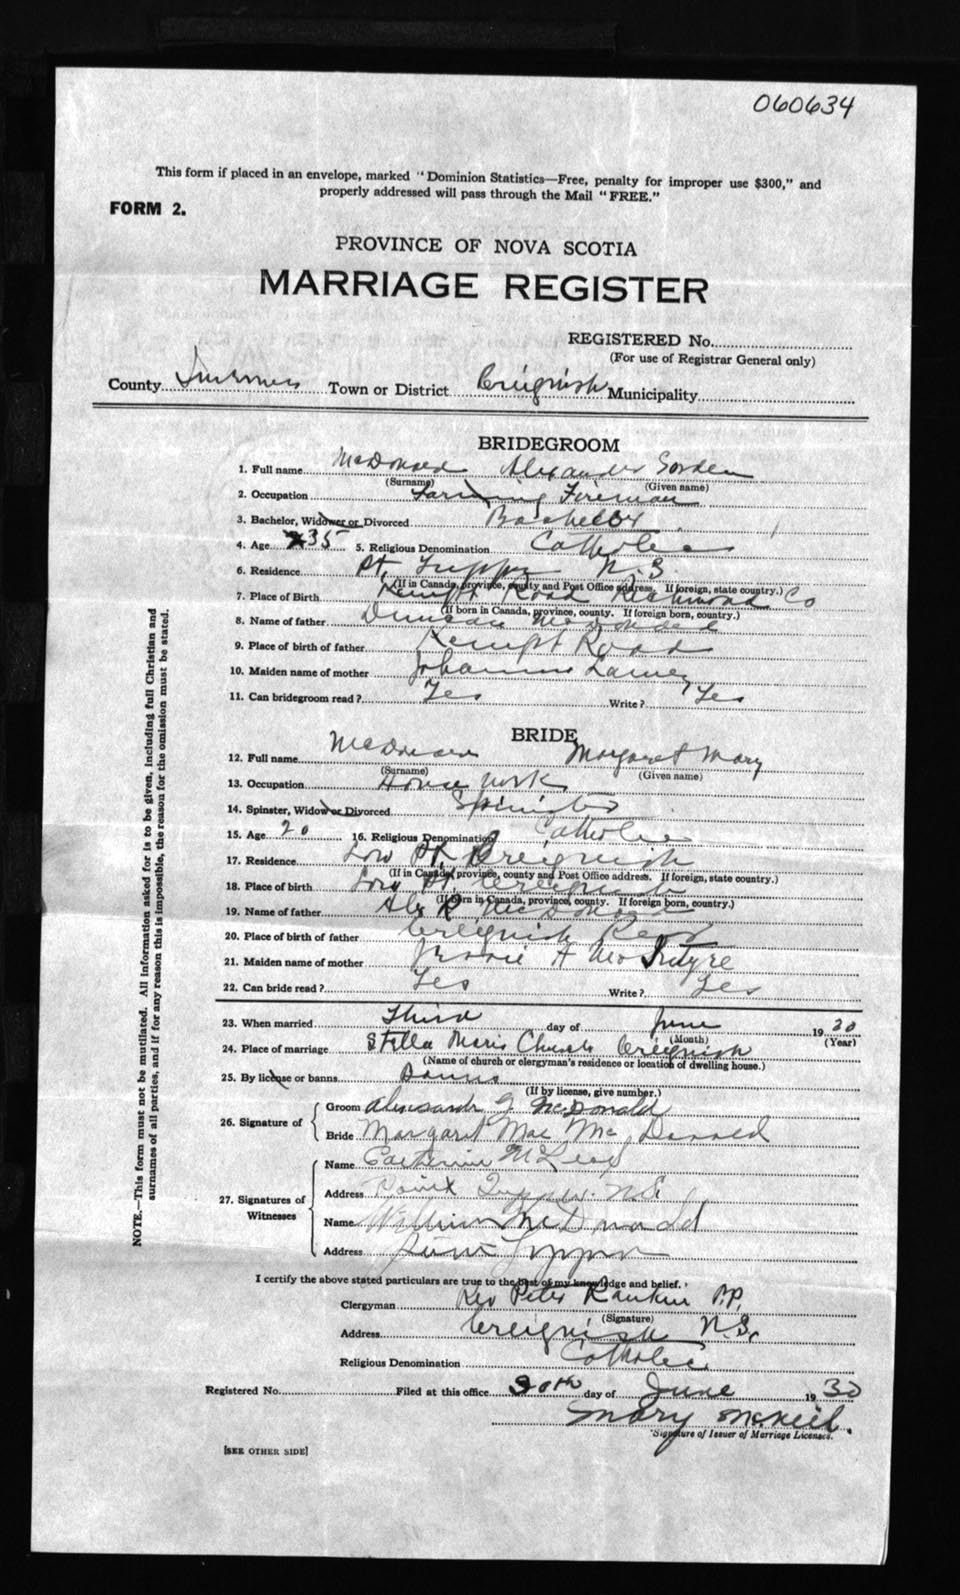 060634
This form if placed in an envelope, marked "Dominion Statistics—Free, penalty for improper use $300," and
properly addressed will pass through the Mail "FREE."
FORM 2.
PROVINCE OF NOVA SCOTIA
MARRIAGE REGISTER
REGISTERED No.
(For use of Registrar General only)
County Inverness Town or District Creignish Municipality
BRIDEGROOM
1. Full name McDonald Alexander Gorden
(Surname) (Given name)
2. Occupation Fireman
3. Bachelor, Widower or Divorced Bachelor
4. Age 35 5. Religious Denomination Catholic
6. Residence Pt. Tupper N.S
(If in Canada, province, county and Post Office address. If foreign, state country.)
7. Place of Birth Kempt Road Richmond Co
(If born in Canada, province, county. If foreign born, country.)
8. Name of father Duncan McDonald
9. Place of birth of father Kempt Road
10. Maiden name of mother Johanna
11. Can bridegroom read? Yes Write? Yes
BRIDE
12. Full name McDonald Margaret Mary
(Surname) (Given name)
13. Occupation House work
14. Spinster, Widow or Divorced Spinster
15. Age 20 16. Religious Denomination Catholic
17. Residence Low Pt. Creignish
(If in Canada, province, county and Post Office address. If foreign, state country.)
18. Place of birth Low Pt. Creignish
(If born in Canada, province, county. If foreign born, country.)
19. Name of father Alex R McDonald
20. Place of birth of father Creignish Rear
21. Maiden name of mother A McIntyre
22. Can bride read? Yes Write? Yes
23. When married Third day of June 1930
(Month) (Year)
24. Place of marriage Stella Maris Church Creignish
(Name of church or clergyman's residence or location of dwelling house.)
25. By license or banns Banns
(If by license, give number.)
26. Signature of
Groom Alexander G McDonald
Bride Margaret Mae McDonald
27. Signatures of Witnesses
Name Catherine McLeod
Address Point Tupper. N.S.
Name William McDonald
Address Point Tupper
I certify the above stated particulars are true to the best of my knowledge and belief.
Clergyman Rev Peter Rankin P.P.
(Signature)
Address Creignish N.S.
Religious Denomination Catholic
Registered No. Filed at this office 30th day of June 1930
Mary McNeil.
Signature of Issuer of Marriage Licenses.
[SEE OTHER SIDE]
NOTE.—This form must not be mutilated. All information asked for is to be given, including full Christian and
surnames of all parties, and if for any reason this is impossible, the reason for the omission must be stated.